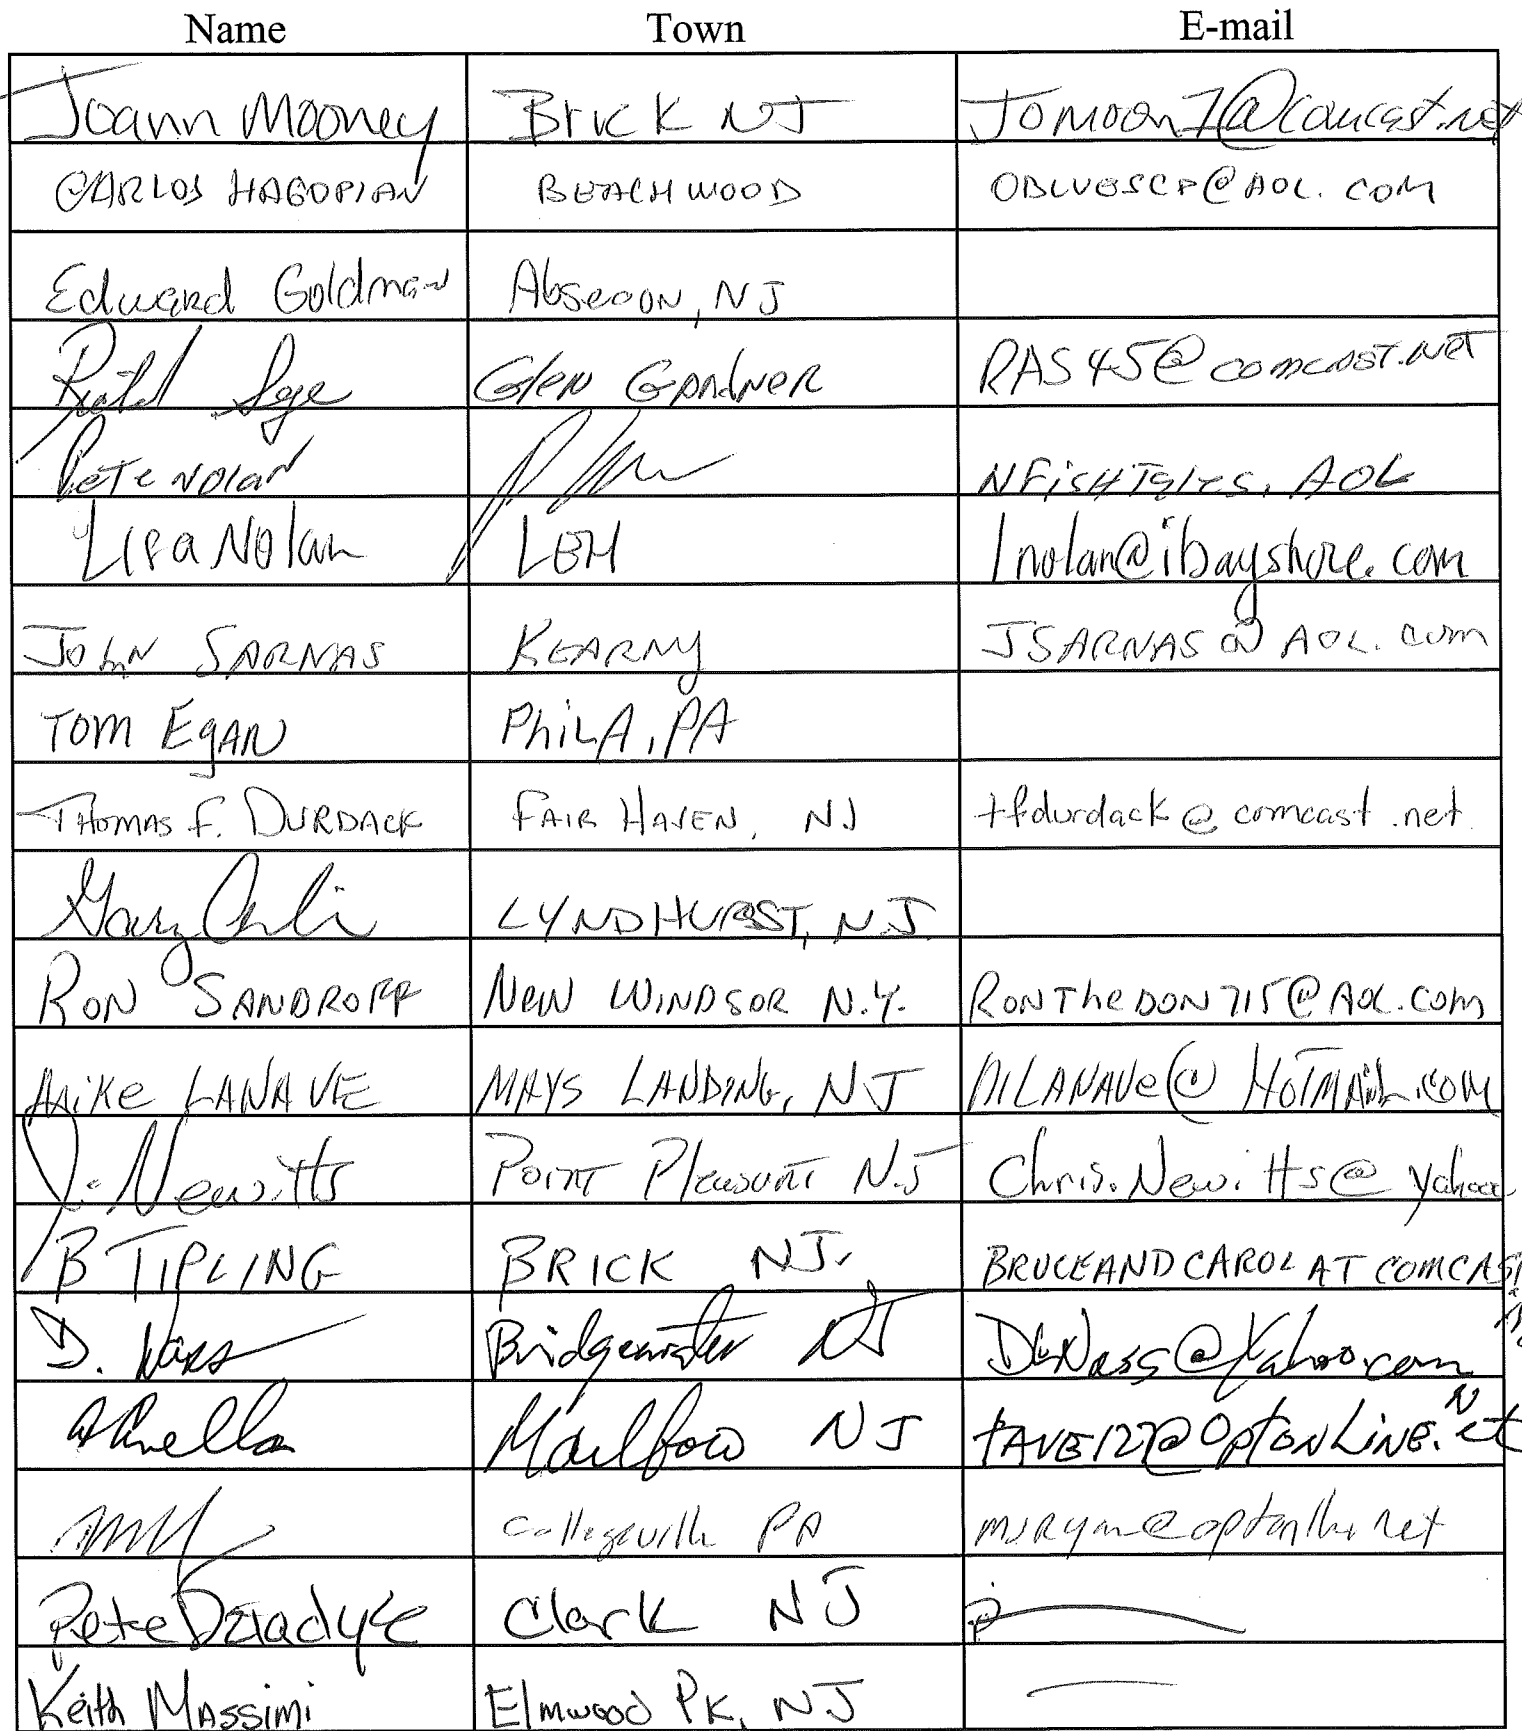 Name Town E-mail
Joann Mooney Brick NJ Jomoon7@comcast.net
CARLOS HAGOPIAN BEACHWOOD OBLUESCP@AOL.COM
Edward Goldman Absecon, NJ
Glen Gardner RAS45@comcast.net
Pete Nolan NFisHTales, AOL
Lisa Nolan LEH lnolan@ibayshore.com
John SARNAS KEARNY JSARNAS@AOL.com
Tom EgAN PhiLA, PA
THOMAS F. DURDACK FAIR HAVEN, NJ tfdurdack@comcast.net
Gary LYNDHURST, N.J.
RON SANDROFF NEW WINDSOR N.Y. RONTheDON715@AOL.COM
Mike LANAVE MAYS LANDING, NJ MLANAVE@HOTMAIL.COM
J. Newitts Point Pleasant NJ Chris.Newitts@yahoo
B TIPLING BRICK NJ. BRUCEANDCAROL AT COMCAST
D. Bridgewater NJ @Yahoo.com
NJ @OptONLINE.Net
Collegeville PA
Pete Clark NJ
Keith Massimi Elmwood PK, NJ